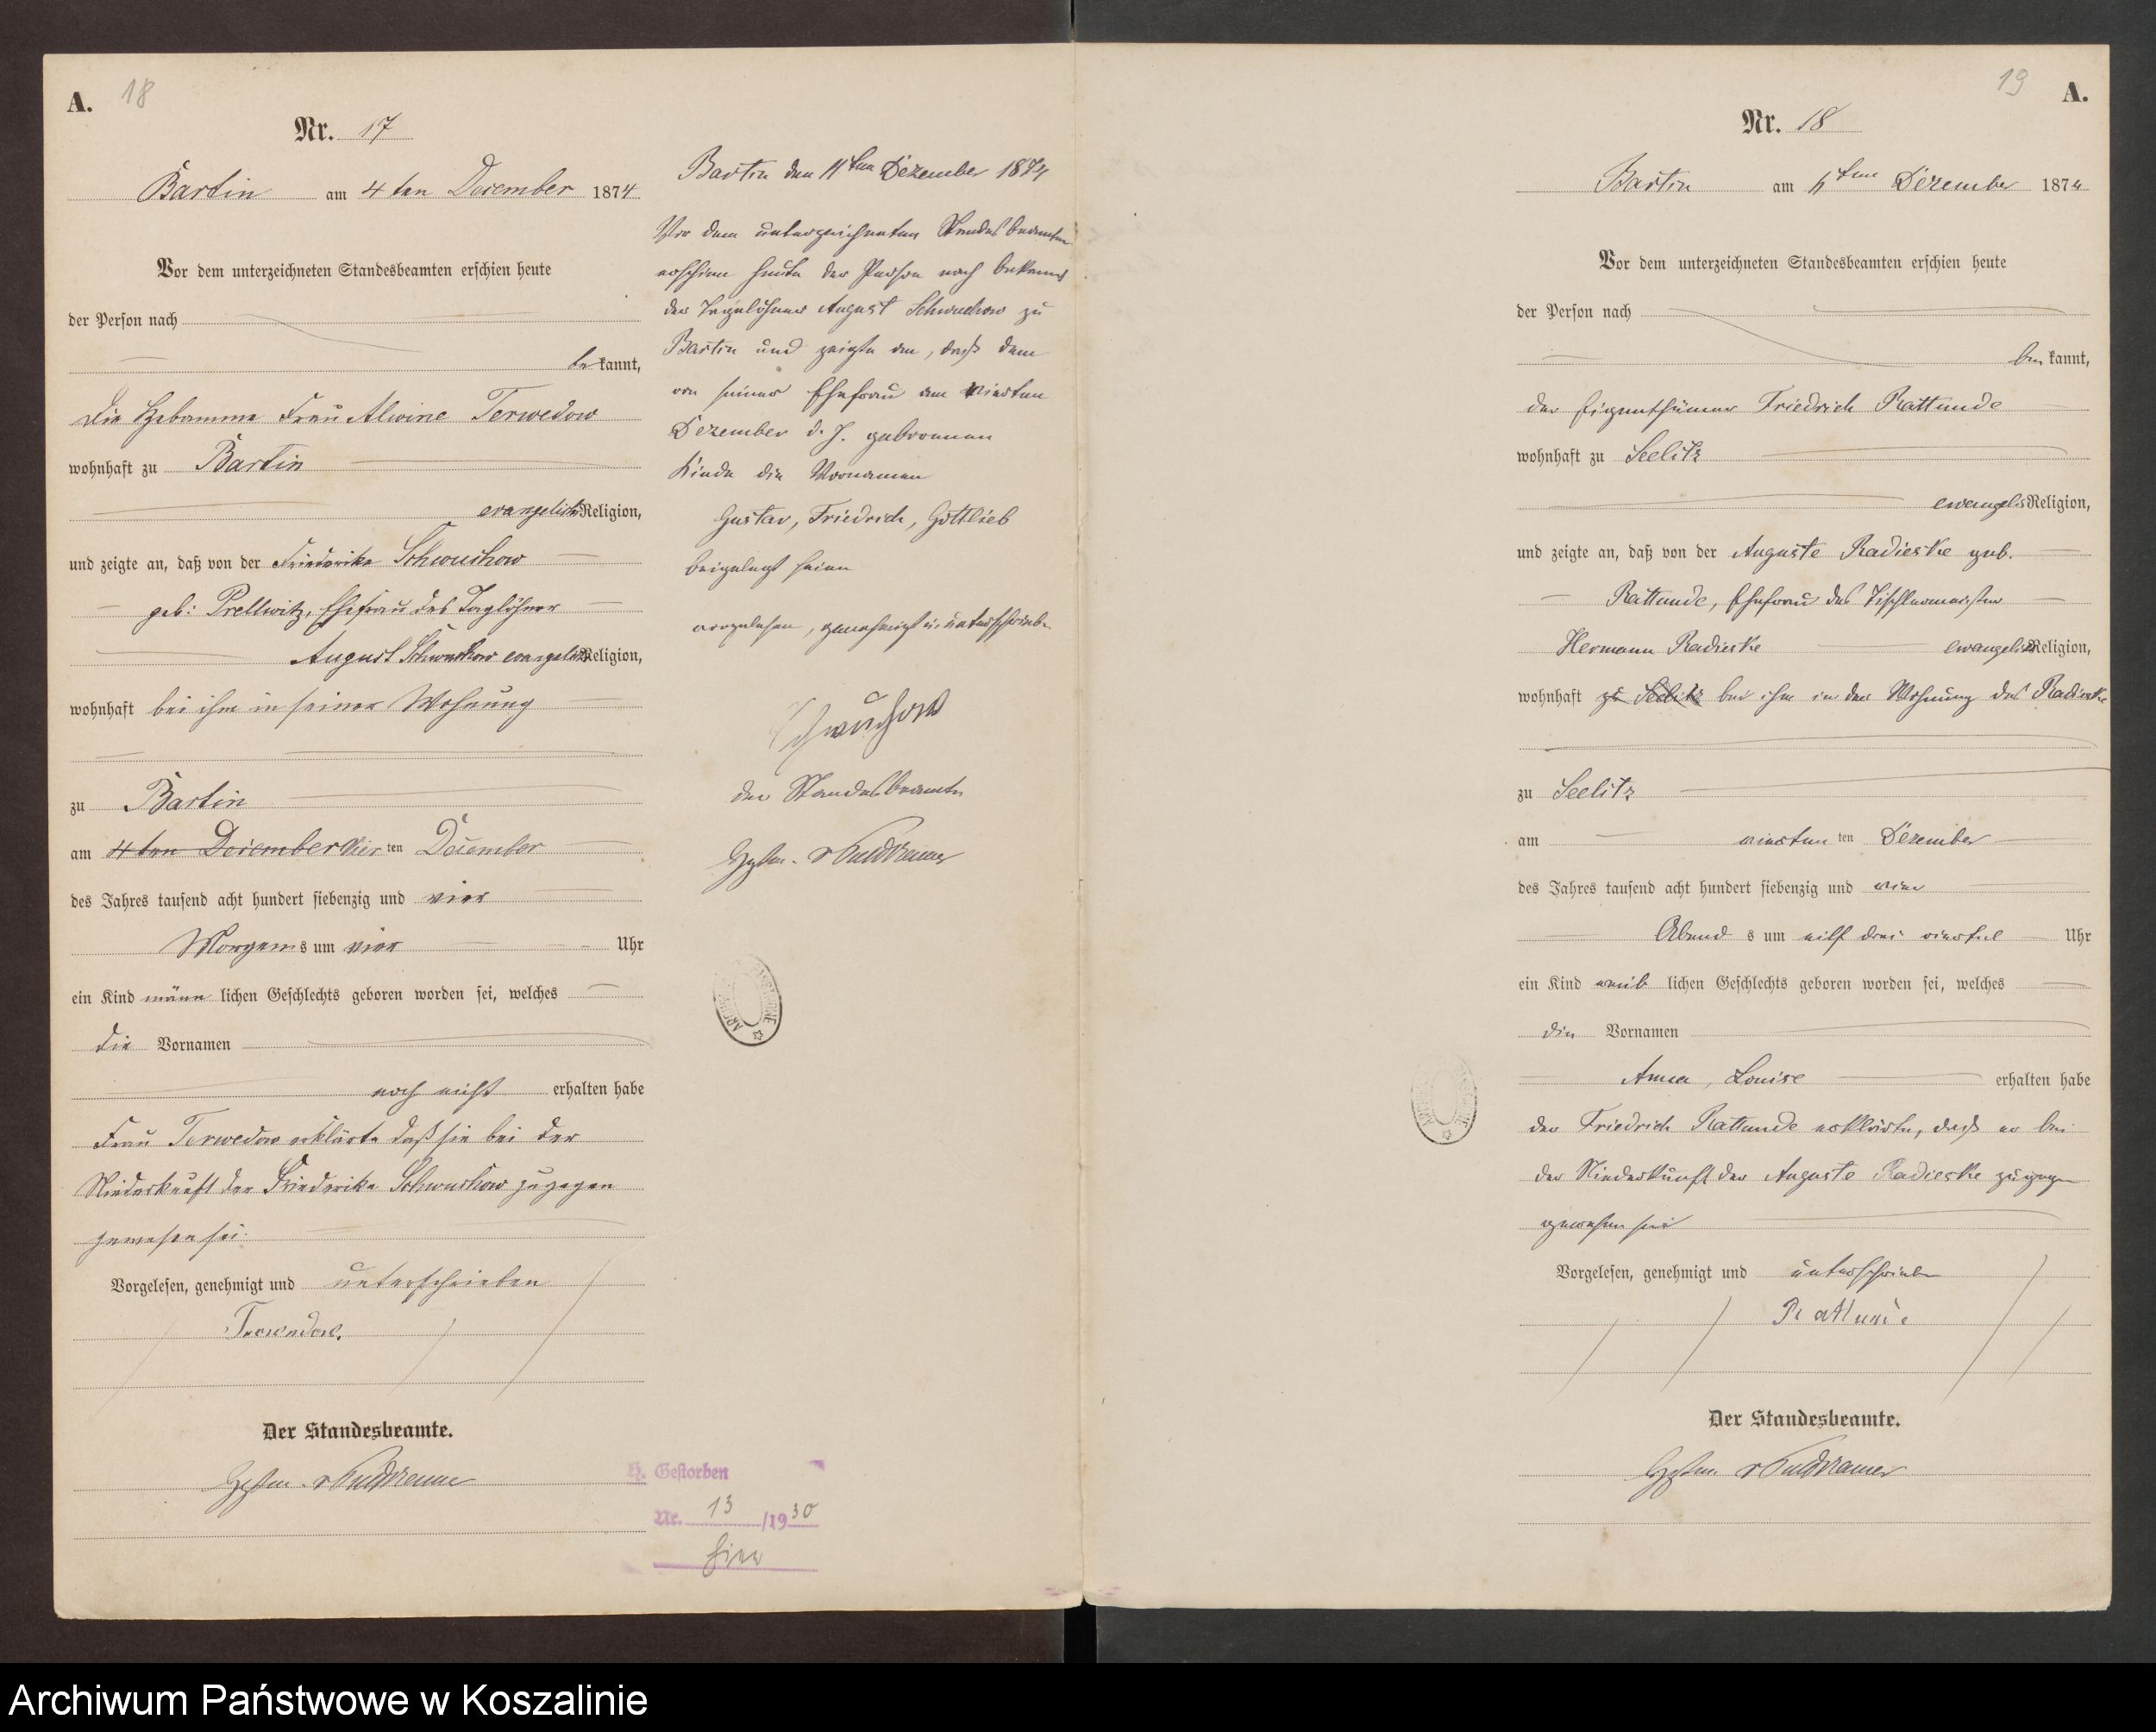 A. 18
Nr. 17
Bartin am 4 ten December 1874
Vor dem unterzeichneten Standesbeamten erschien heute
der Person nach
be kannt,
die Hebamme Frau Alwine Terwedow
wohnhaft zu Bartin
evangelisch Religion,
und zeigte an, daß von der Friederike Schwuchow
geb: Prellwitz, Ehefrau des Taglöhner
August Schwuchow evangelisch Religion,
wohnhaft bei ihm in seiner Wohnung
zu Bartin
am 4 ten December vier ten December
des Jahres tausend acht hundert siebenzig und vier
Morgens um vier Uhr
ein Kind männ lichen Geschlechts geboren worden sei, welches
die Vornamen
noch nicht erhalten habe
Frau Terwedow erklärte daß sie bei der
Niederkunft der Friederike Schwuchow zugegen
gewesen sei.
Vorgelesen, genehmigt und unterschrieben
Terwedow.
Der Standesbeamte.
Bartin den 11ten Dezember 1874
Vor dem unterzeichneten Standesbeamten
erschien heute der Person nach bekannt
der Tagelöhner August Schwuchow zu
Bartin und zeigte an, daß dem
von seiner Ehefrau am vierten
Dezember d. J. geborenen
Kinde die Vornamen
Gustav, Friedrich, Gottlieb
beigelegt seien
vorgelesen, genehmigt u. unterschrieben
Schwuchow
der Standesbeamte
H. Gestorben
Nr. 13 /1930
hier
19 A.
Nr. 18
Bartin am ten Dezember 1874
Vor dem unterzeichneten Standesbeamten erschien heute
der Person nach
be kannt,
der Eigenthümer Friedrich Rattunde
wohnhaft zu Seelitz
ewangelis Religion,
und zeigte an, daß von der Auguste Radieske geb.
Rattunde, Ehefrau des Tischlermeister
Hermann Radieske ewangelis Religion,
wohnhaft zu Seelitz bei ihm in der Wohnung des Radieske
zu Seelitz
am vierten ten Dezember
des Jahres tausend acht hundert siebenzig und vier
Abend s um eilf drei viertel Uhr
ein Kind weib lichen Geschlechts geboren worden sei, welches
die Vornamen
Anna, Louise erhalten habe
der Friedrich Rattunde erklärte, daß er bei
der Niederkunft der Auguste Radieske zugegen
gewesen sei
Vorgelesen, genehmigt und unterschrieben
Rattunde
Der Standesbeamte.
Archiwum Państwowe w Koszalinie